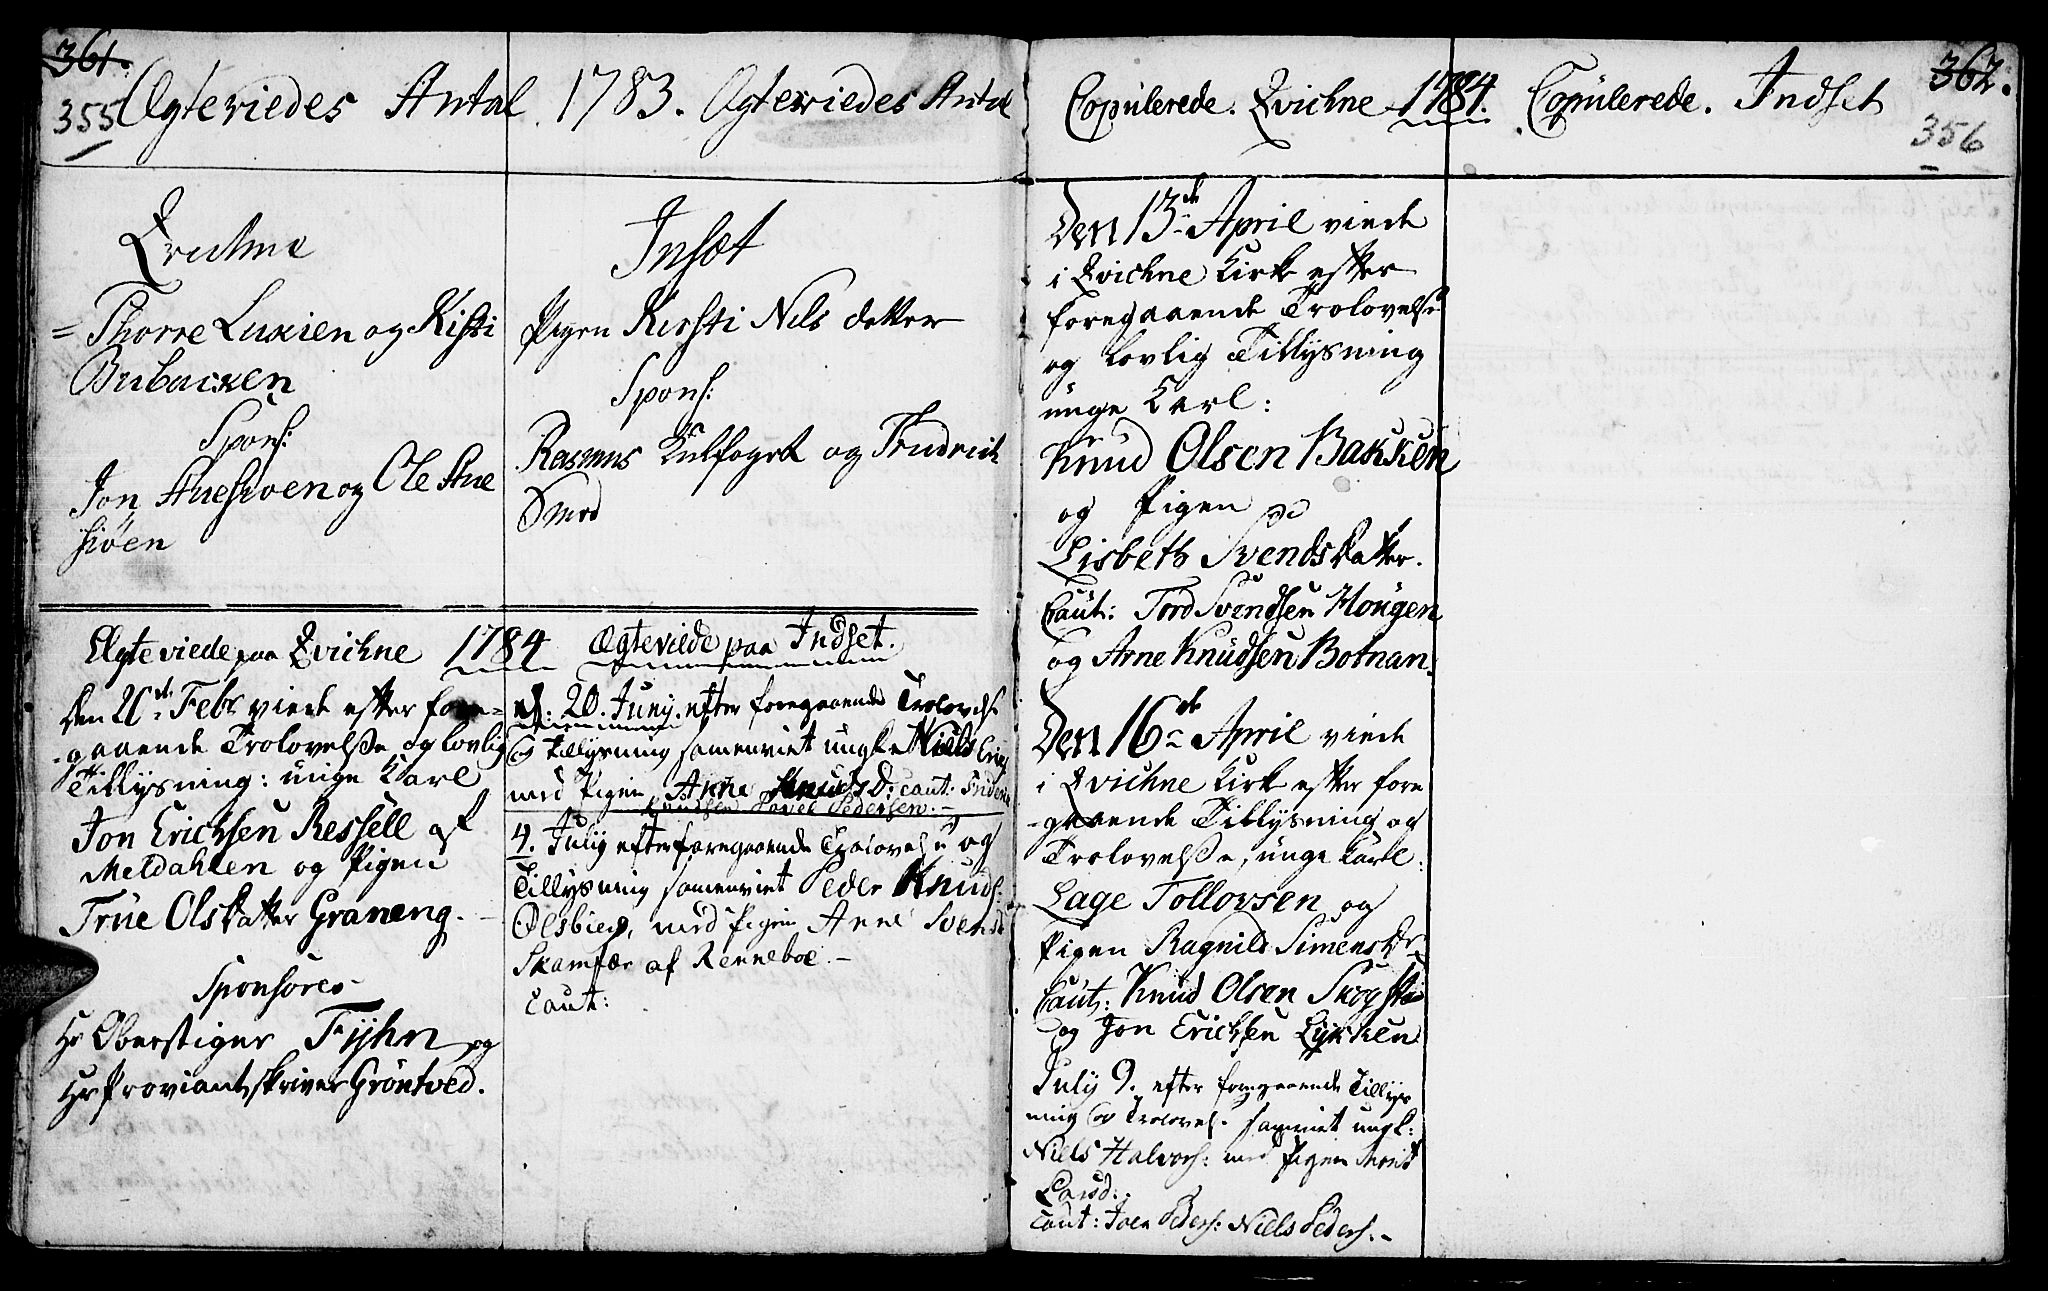 361.
355 Ægteviedes Antal 1783. Ægteviedes Antal
Qvikne
= Thorre Luxien og Kisti
Bubacken
Spons:
Jon Auesiöen og Ole Aue
siöen
Insæt
Pigen Kirsti Nils detter
Spons:
Rasmus Kulfoget og Fridrich
Smed
Ægteviede paa Qvichne 1784
den 20de Febr viede efter fore-
-gaaende Trolovelsse og lovlig
Tillysning: unge Karl
Jon Erichsen Ressell af
Meldahlen og Pigen
True Olsdatter Graneng.
Sponsores
Hr Oberstiger Fyhn og
Hr Proviantskriver Gröntved.
Ægteviede paa Indset.
d: 20. Juny. efter foregaaende Trolovels
og Tillysning samenviet ungk Niels Erics
med Pigen Anne Knudsd: caut: Frideric
Knudsen Povel Pedersen.-
4. July efter foregaaende Trolovelse og
Tillysning samenviet Peder Knuds:
Olsbierg, med Pigen Anne Svends
Skamfær af Renneboe.-
Caut:
362.
Copulerede. Qvichne 1784. Copulerede. Indset
356
Den 13de April viede
i Qvichne Kirke efter
foregaaende Trolovelse
og lovlig Tillysning
unge Karl:
Knud Olsen Bakken
og Pigen
Lisbeth Svendsdatter.
Caut: Tord Svendsen Hougen
og Arne Knudsen Botnan.
Den 16de April viede
i Qvichne Kirke efter fore
-gaaende Tillysning og
Trolovelsse, unge Karl:
Lage Tollovsen og
Pigen Ragnild Simensdr
Caut: Knud Olsen Skogsta
og Jon Erichsen Lykken
July 9. efter foregaaende Tillys
ning og Trolovels. samviet ungk:
Niels Halvors: med Pigen Marit
Larsd:.
Caut: Joen Peders: Niels Peders.-